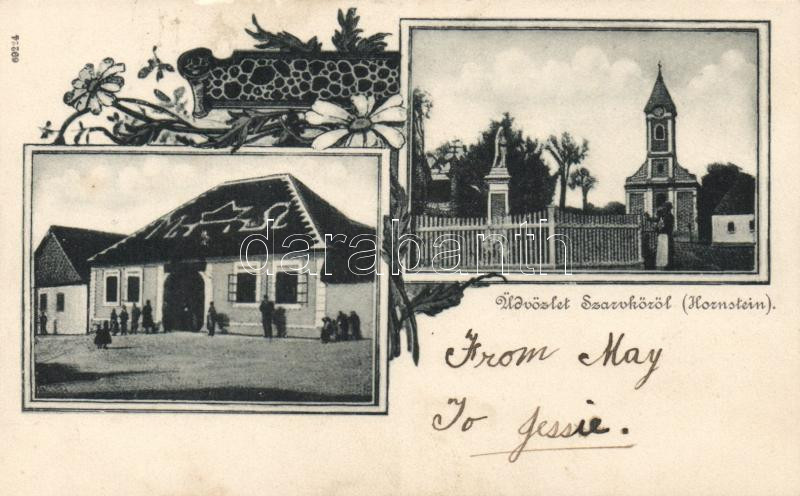 69224
darabanth
Üdvözlet Szarvkőről (Hornstein).
From May
To Jessie.